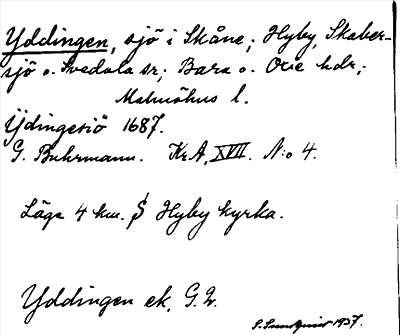 Yddingen, sjö i Skåne; Hyby, Skaber-
sjö o. Svedala sr; Bara o. Oxie hdr;
Malmöhus l.
Ydingesiö 1687.
G. Buhrmann. KrA, XVII. N:o 4.
Läge 4 km. S Hyby kyrka.
Yddingen ek. G.
S. Sundquist 1937.